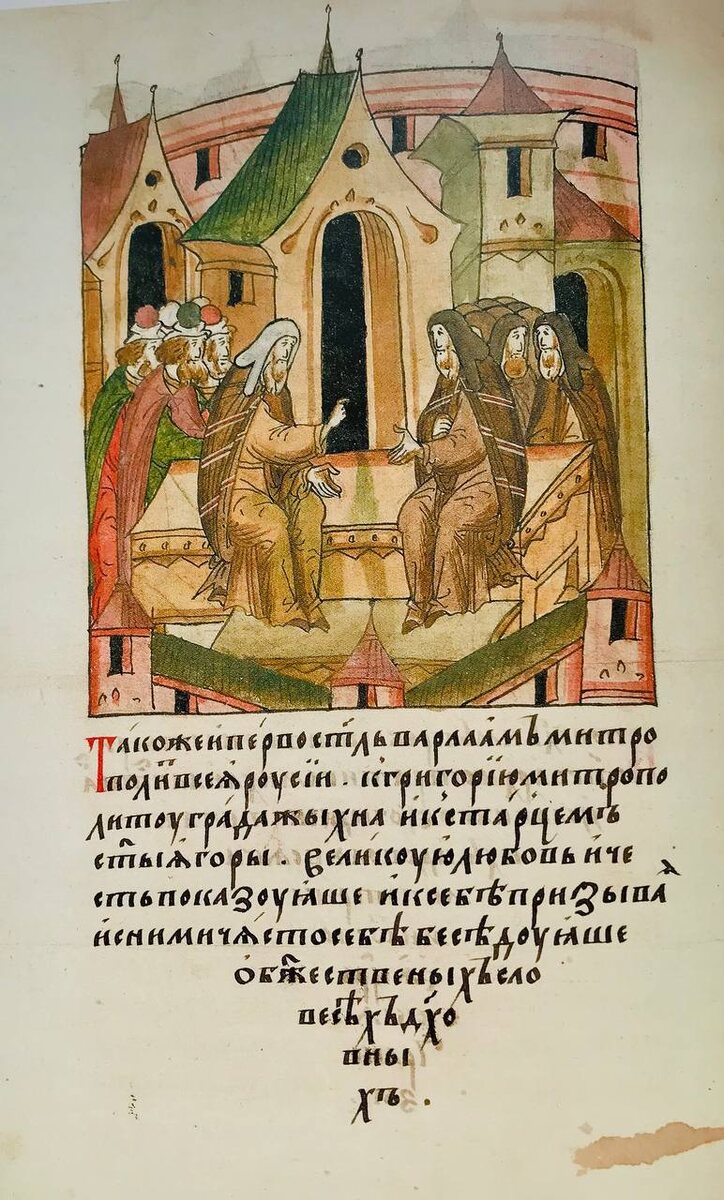 Такожеипервостл҃ьварлаамъмитро
поли҃твсеѧроусїи. кгригорїюмитропо
литоуградажыхна икстарцемъ
ст҃ыѧгоры. великоуюлюбовьиче
стьпоказоуꙗше иксебѣпризываѧ
иснимичѧстосебѣбесѣдоуꙗше
обж҃ественыхъсло
весѣхъдх҃о
вны
хъ.